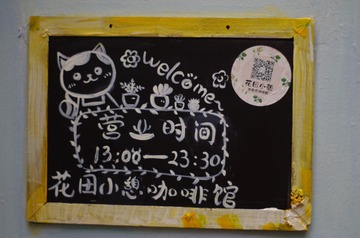 welcome
花田小憩
营业时间
13:00—23:30
花田小憩咖啡馆